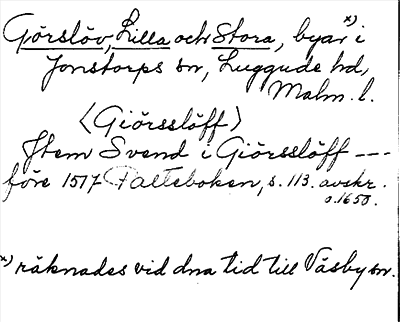 Görslöv, Lilla och Stora, byar x) i
Jonstorps sn, Luggude hd,
Malm. l.
〈Giörsslöff〉
Item Svend i Giörsslöff ---
före 1517 Palteboken, s. 113. avskr.
o. 1650.
x) räknades vid dna tid till Väsby sn.